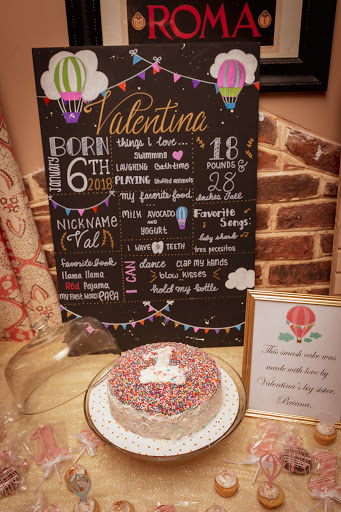 ROMA
Valentina
BORN
January
6TH
2018
things i love...
Swimming
LAUGHING Bathtime
PLAYING Stuffed animals
my favorite food
MILK AVOCADO and
YOGURT
I HAVE 8 TEETH
18
POUNDS &
28
inches Tall
Favorite
Songs:
baby shark
tres pececitos
NICKNAME
Val
Favorite book
llama llama
Red Pajama
MY FIRST WORD PAPA
I CAN
dance CLAP MY HANDS
blow kisses
hold my bottle
This smash cake was
made with love by
Valentina's big sister,
Briana.